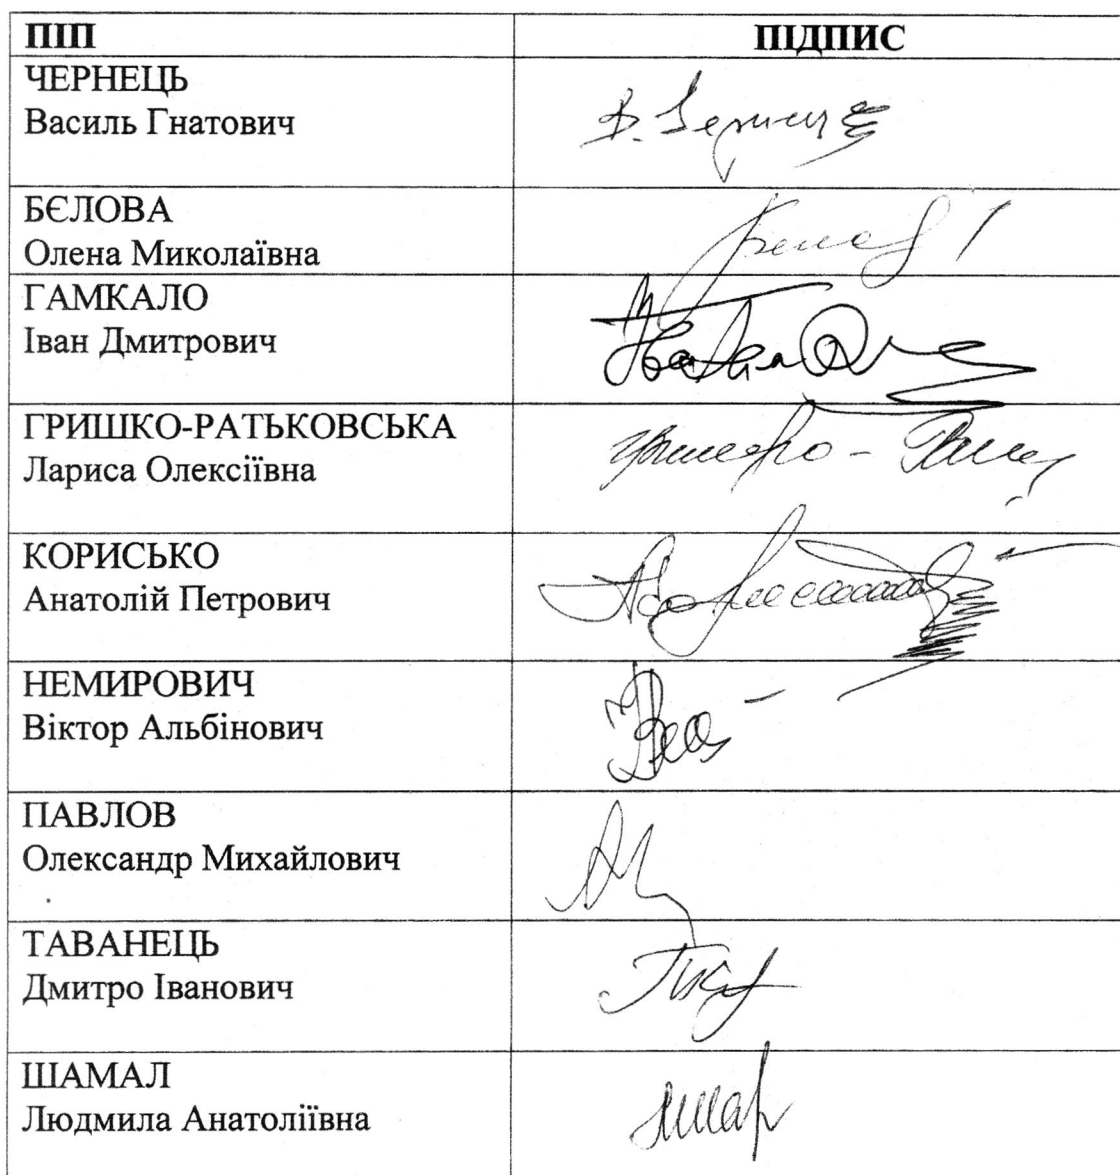 ПІП
ПІДПИС
ЧЕРНЕЦЬ
Василь Гнатович
БЄЛОВА
Олена Миколаївна
ГАМКАЛО
Іван Дмитрович
ГРИШКО-РАТЬКОВСЬКА
Лариса Олексіївна
КОРИСЬКО
Анатолій Петрович
НЕМИРОВИЧ
Віктор Альбінович
ПАВЛОВ
Олександр Михайлович
ТАВАНЕЦЬ
Дмитро Іванович
ШАМАЛ
Людмила Анатоліївна